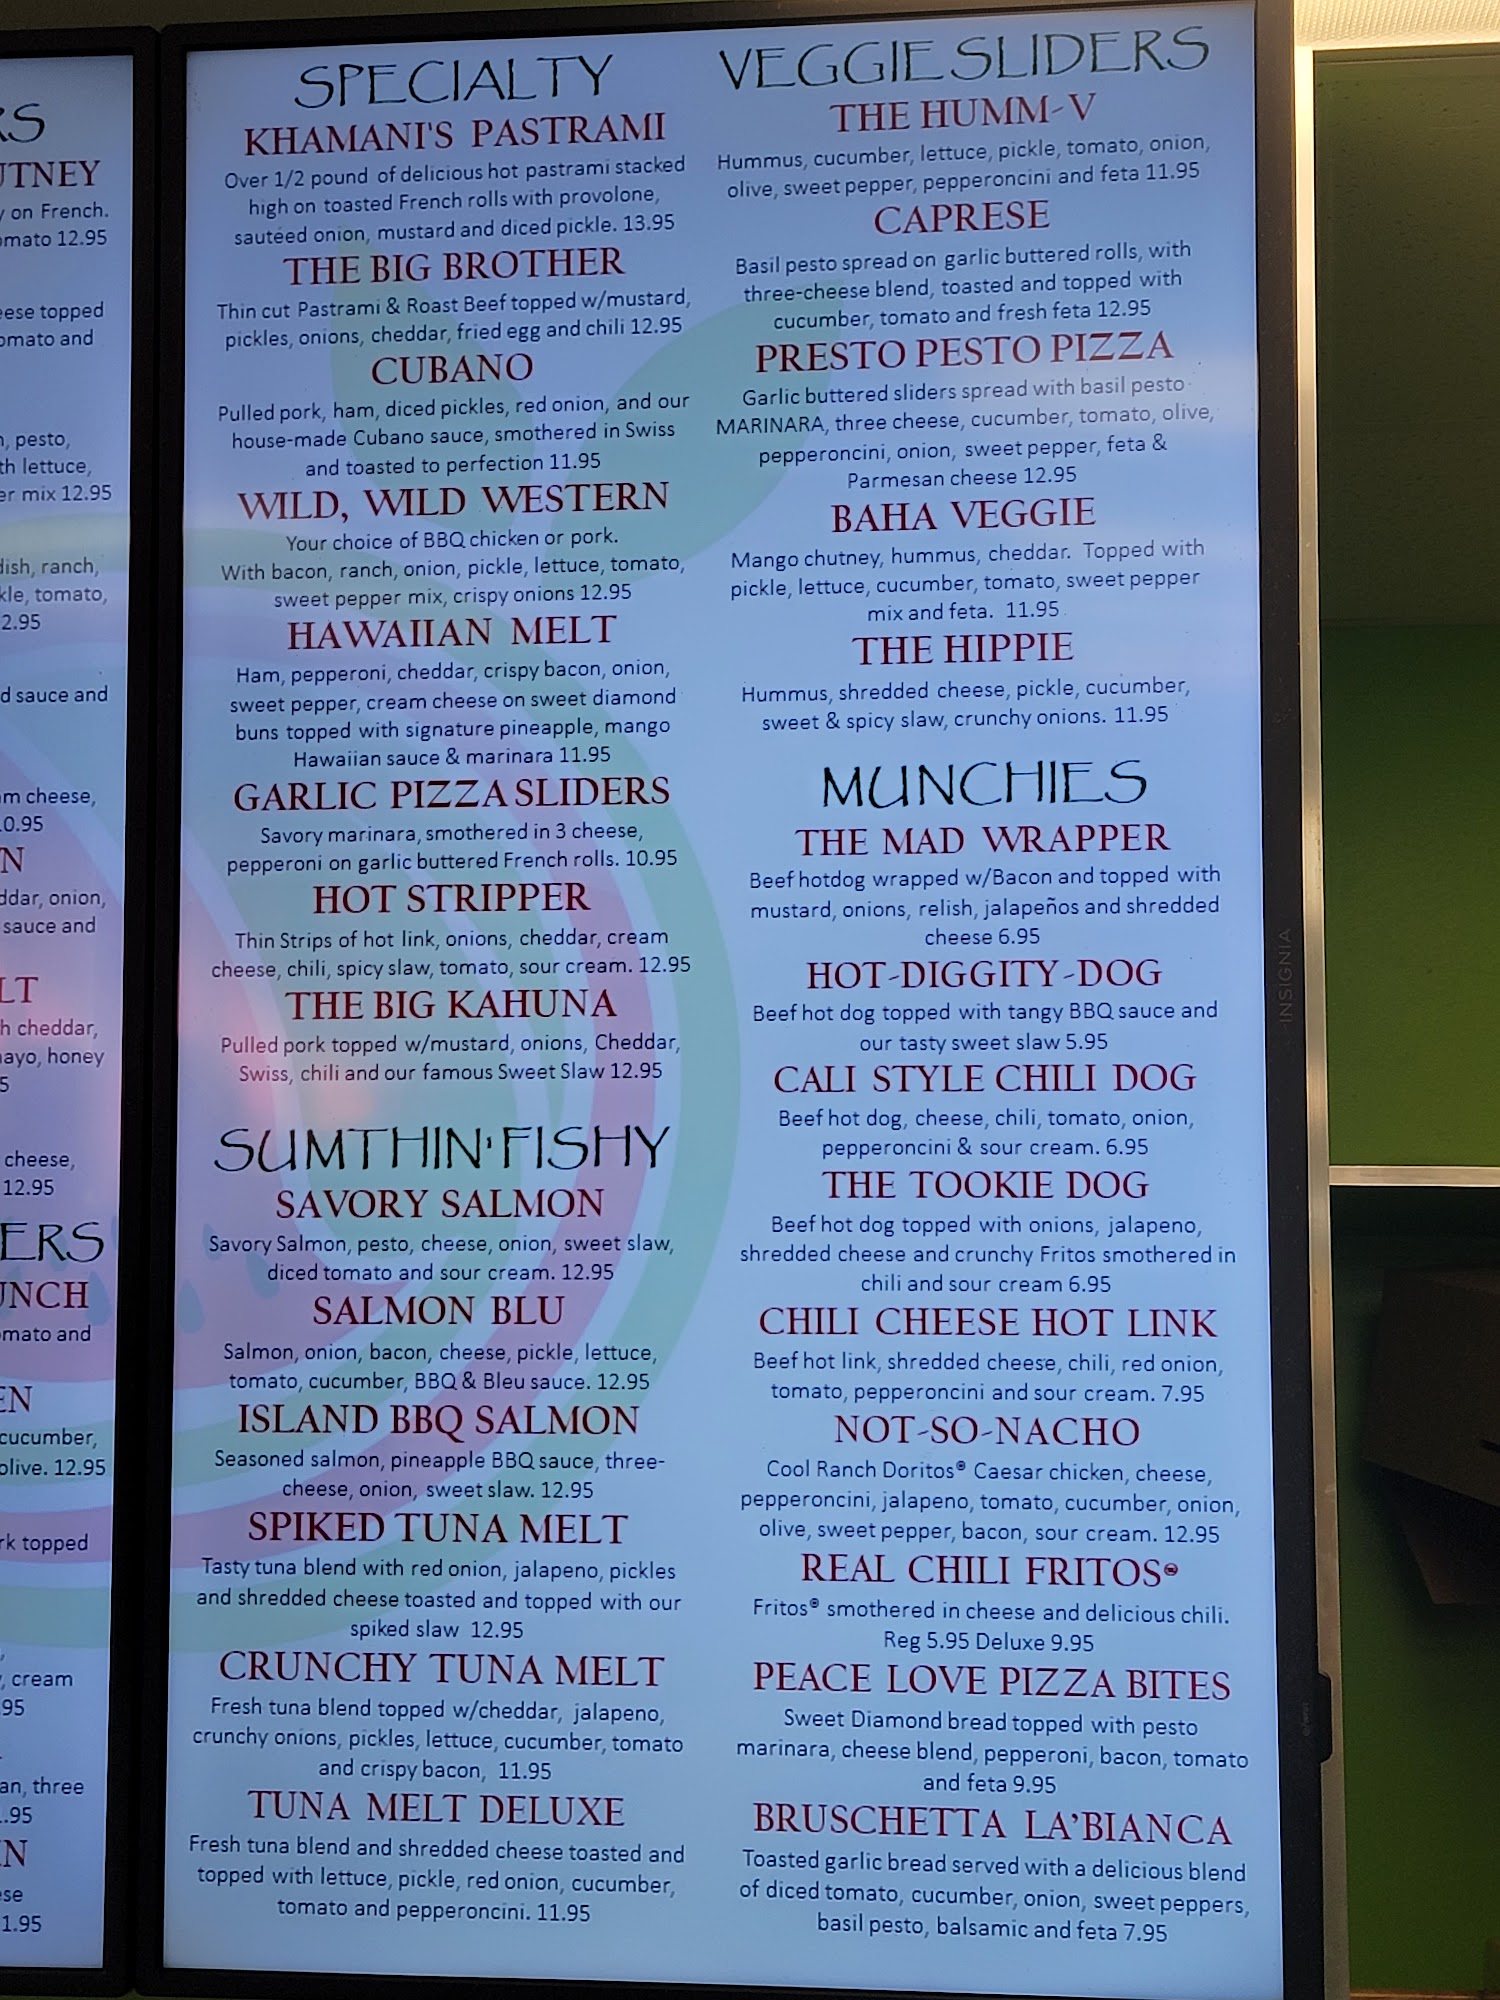 RS
UTNEY
y on French.
omato 12.95
eese topped
omato and
n, pesto,
th lettuce,
er mix 12.95
dish, ranch,
kle, tomato,
2.95
d sauce and
am cheese,
.0.95
N
ddar, onion,
sauce and
LT
h cheddar,
nayo, honey
5
cheese,
12.95
ERS
UNCH
omato and
EN
cucumber,
olive. 12.95
rk topped
, cream
95
an, three
.95
N
ese
1.95
SPECIALTY
KHAMANI'S PASTRAMI
Over 1/2 pound of delicious hot pastrami stacked
high on toasted French rolls with provolone,
sautéed onion, mustard and diced pickle. 13.95
THE BIG BROTHER
Thin cut Pastrami & Roast Beef topped w/mustard,
pickles, onions, cheddar, fried egg and chili 12.95
CUBANO
Pulled pork, ham, diced pickles, red onion, and our
house-made Cubano sauce, smothered in Swiss
and toasted to perfection 11.95
WILD, WILD WESTERN
Your choice of BBQ chicken or pork.
With bacon, ranch, onion, pickle, lettuce, tomato,
sweet pepper mix, crispy onions 12.95
HAWAIIAN MELT
Ham, pepperoni, cheddar, crispy bacon, onion,
sweet pepper, cream cheese on sweet diamond
buns topped with signature pineapple, mango
Hawaiian sauce & marinara 11.95
GARLIC PIZZA SLIDERS
Savory marinara, smothered in 3 cheese,
pepperoni on garlic buttered French rolls. 10.95
HOT STRIPPER
Thin Strips of hot link, onions, cheddar, cream
cheese, chili, spicy slaw, tomato, sour cream. 12.95
THE BIG KAHUNA
Pulled pork topped w/mustard, onions, Cheddar,
Swiss, chili and our famous Sweet Slaw 12.95
SUMTHIN' FISHY
SAVORY SALMON
Savory Salmon, pesto, cheese, onion, sweet slaw,
diced tomato and sour cream. 12.95
SALMON BLU
Salmon, onion, bacon, cheese, pickle, lettuce,
tomato, cucumber, BBQ & Bleu sauce. 12.95
ISLAND BBQ SALMON
Seasoned salmon, pineapple BBQ sauce, three-
cheese, onion, sweet slaw. 12.95
SPIKED TUNA MELT
Tasty tuna blend with red onion, jalapeno, pickles
and shredded cheese toasted and topped with our
spiked slaw 12.95
CRUNCHY TUNA MELT
Fresh tuna blend topped w/cheddar, jalapeno,
crunchy onions, pickles, lettuce, cucumber, tomato
and crispy bacon, 11.95
TUNA MELT DELUXE
Fresh tuna blend and shredded cheese toasted and
topped with lettuce, pickle, red onion, cucumber,
tomato and pepperoncini. 11.95
VEGGIE SLIDERS
THE HUMM-V
Hummus, cucumber, lettuce, pickle, tomato, onion,
olive, sweet pepper, pepperoncini and feta 11.95
CAPRESE
Basil pesto spread on garlic buttered rolls, with
three-cheese blend, toasted and topped with
cucumber, tomato and fresh feta 12.95
PRESTO PESTO PIZZA
Garlic buttered sliders spread with basil pesto
MARINARA, three cheese, cucumber, tomato, olive,
pepperoncini, onion, sweet pepper, feta &
Parmesan cheese 12.95
BAHA VEGGIE
Mango chutney, hummus, cheddar. Topped with
pickle, lettuce, cucumber, tomato, sweet pepper
mix and feta. 11.95
THE HIPPIE
Hummus, shredded cheese, pickle, cucumber,
sweet & spicy slaw, crunchy onions. 11.95
MUNCHIES
THE MAD WRAPPER
Beef hotdog wrapped w/Bacon and topped with
mustard, onions, relish, jalapeños and shredded
cheese 6.95
HOT-DIGGITY-DOG
Beef hot dog topped with tangy BBQ sauce and
our tasty sweet slaw 5.95
CALI STYLE CHILI DOG
Beef hot dog, cheese, chili, tomato, onion,
pepperoncini & sour cream. 6.95
THE TOOKIE DOG
Beef hot dog topped with onions, jalapeno,
shredded cheese and crunchy Fritos smothered in
chili and sour cream 6.95
CHILI CHEESE HOT LINK
Beef hot link, shredded cheese, chili, red onion,
tomato, pepperoncini and sour cream. 7.95
NOT-SO-NACHO
Cool Ranch Doritos® Caesar chicken, cheese,
pepperoncini, jalapeno, tomato, cucumber, onion,
olive, sweet pepper, bacon, sour cream. 12.95
REAL CHILI FRITOS®
Fritos® smothered in cheese and delicious chili.
Reg 5.95 Deluxe 9.95
PEACE LOVE PIZZA BITES
Sweet Diamond bread topped with pesto
marinara, cheese blend, pepperoni, bacon, tomato
and feta 9.95
BRUSCHETTA LA'BIANCA
Toasted garlic bread served with a delicious blend
of diced tomato, cucumber, onion, sweet peppers,
basil pesto, balsamic and feta 7.95
INSIGNIA